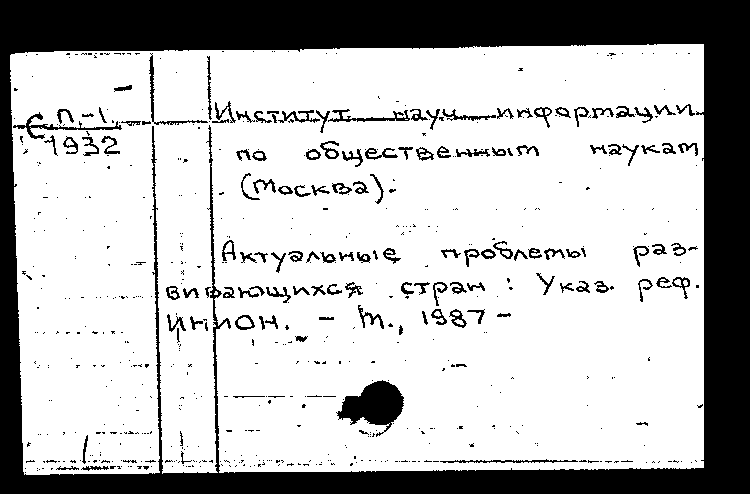 С П.-1
1932
Институт науч. информации
по общественным наукам
(Москва).
Актуальные проблемы раз-
вивающихся стран : Указ. реф.
ИНИОН. - М., 1987 -